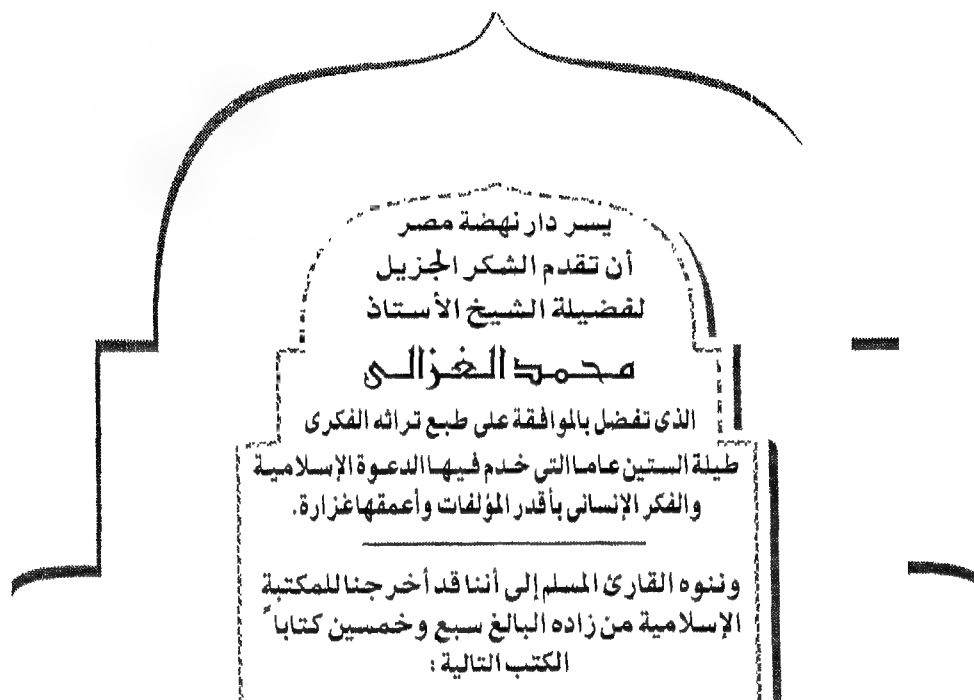 يسر دار نهضة مصر
أن تقدم الشكر الجزيل
لفضيلة الشيخ الأستاذ
محمد الغزالى
الذى تفضل بالموافقة على طبع تراثه الفكرى
طيلة الستين عاما التى خدم فيها الدعوة الإسلامية
والفكر الإنسانى بأقدر المؤلفات وأعمقها غزارة.
وننوه القارئ المسلم إلى أننا قد أخرجنا للمكتبة
الإسلامية من زاده البالغ سبع وخمسين كتاباً
الكتب التالية :